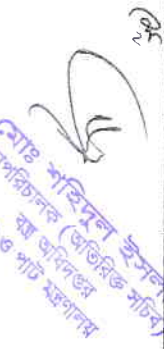 মোঃ শহিদুল ইসলা
পরিচালক (অতিরিক্ত সচিব)
বস্ত্র অধিদপ্তর
ও পাট মন্ত্রণালয়